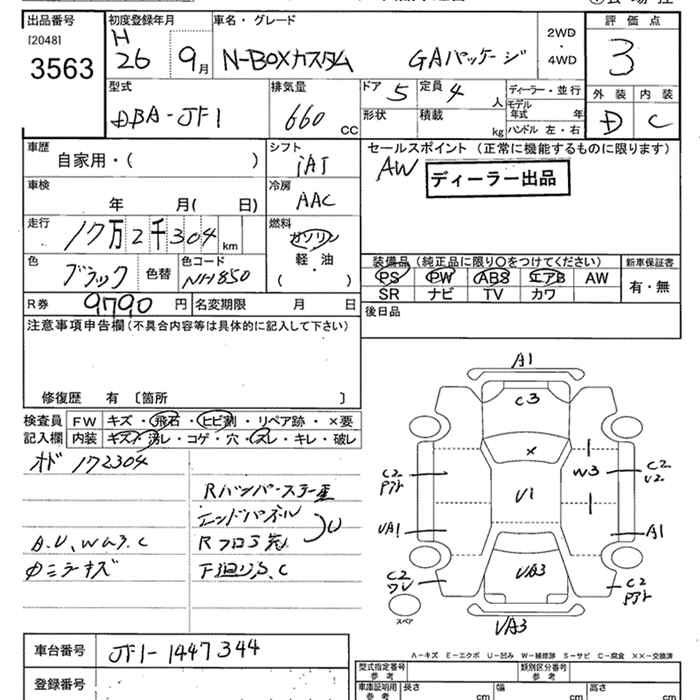 出品番号 [2048] 3563
初度登録年月 H 26 9月
車名・グレード N-BOXカスタム GAパッケージ
2WD・4WD
評価点 3
型式 DBA-JF1
排気量 660 CC
ドア 5 定員 4 人
形状 積載 kg
ディーラー・並行
モデル年式 年
ハンドル 左・右
外装 D 内装 C
車歴 自家用・( )
シフト iAT
セールスポイント (正常に機能するものに限ります)
AW ディーラー出品
車検 年 月( 日)
冷房 AAC
走行 17万2千304 km
燃料 ガソリン 軽・油 ( )
色 ブラック 色替 色コード NH850
装備品 (純正品に限り○をつけてください) 新車保証書
PS PW ABS エアB AW 有・無
SR ナビ TV カワ
R券 9790 円 名変期限 月 日
後日品
注意事項申告欄 (不具合内容等は具体的に記入して下さい)
修復歴 有 〔箇所 〕
検査員 FW キズ・飛石・ヒビ割・リペア跡・×要
記入欄 内装 キズ・汚レ・コゲ・穴・スレ・キレ・破レ
オド 172304
Rバンパーステー歪
エンドパネル
U
Rフロア
A.U.W小S.C
内ミラーキズ
下廻りS.C
A1
C3
×
U1
W3
C2
U2
C2
UA1
A1
C2
UA3
C2
UA3
スペア
A-キズ E-エクボ U-凹み W-補修跡 S-サビ C-腐食 ××-交換済
車台番号 JF1-1447344
登録番号
型式指定番号 参考 類別区分番号 参考
車庫証明用 参考 長さ cm 幅 cm 高さ cm